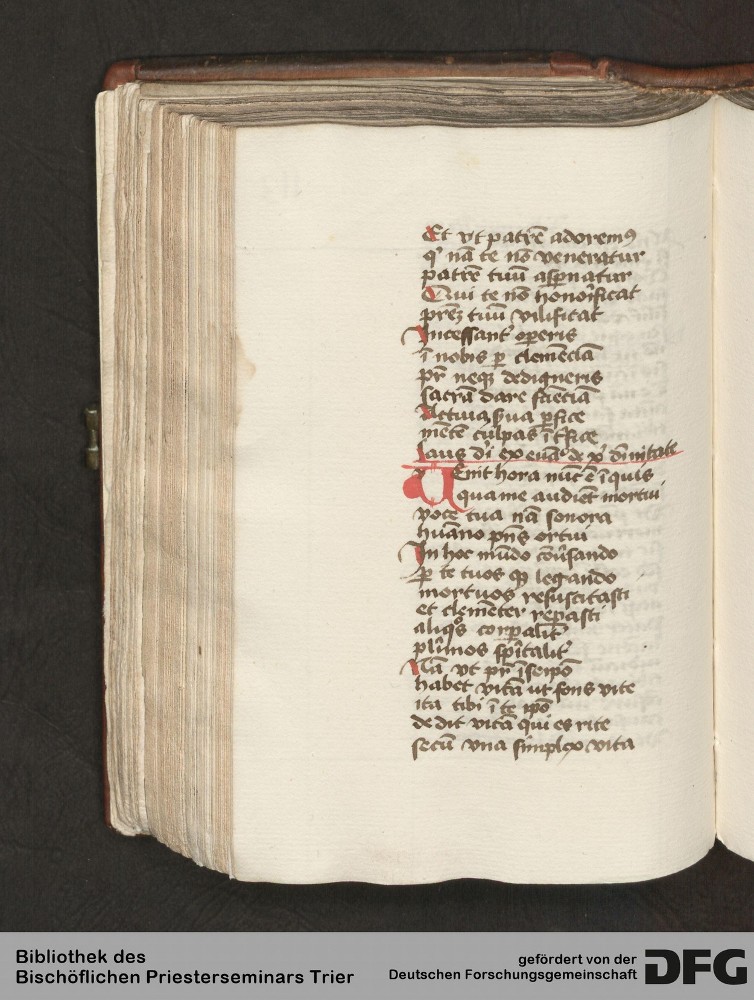 Et vt patrē adoremꝯ
qͥ nā te nō veneratur
patrē tuū aspnatur
Qui te nō honoīficat
prēz tuū vilificat
Incessant' operis
ī nobis ꝑ clemēciā
pr̄ neqꝫ dedigneris
sacrā dare sciēciā
ꝑfice
mētē culpas īt'fice
laus dī ex euāᵍ de xͥ dīnitate
Uenit hora nūc ē ī quis
qua me audiēt mortui
voce tua nā sonora
huāno pn̄s ortui
In hoc mūdo cōūsando
ꝑ te tuos qꝫ legando
mortuos resuscitasti
et clemēter repasti
aliqͦs corpalit'
plīmos spītalit'
Nā vt pr̄ ī seipō
habet vitā ut fons vite
ita tibi ī te ipō
dedit vitā qui es rite
secū vna simplex vita
Bibliothek des
Bischöflichen Priesterseminars Trier
gefördert von der
Deutschen Forschungsgemeinschaft
DFG